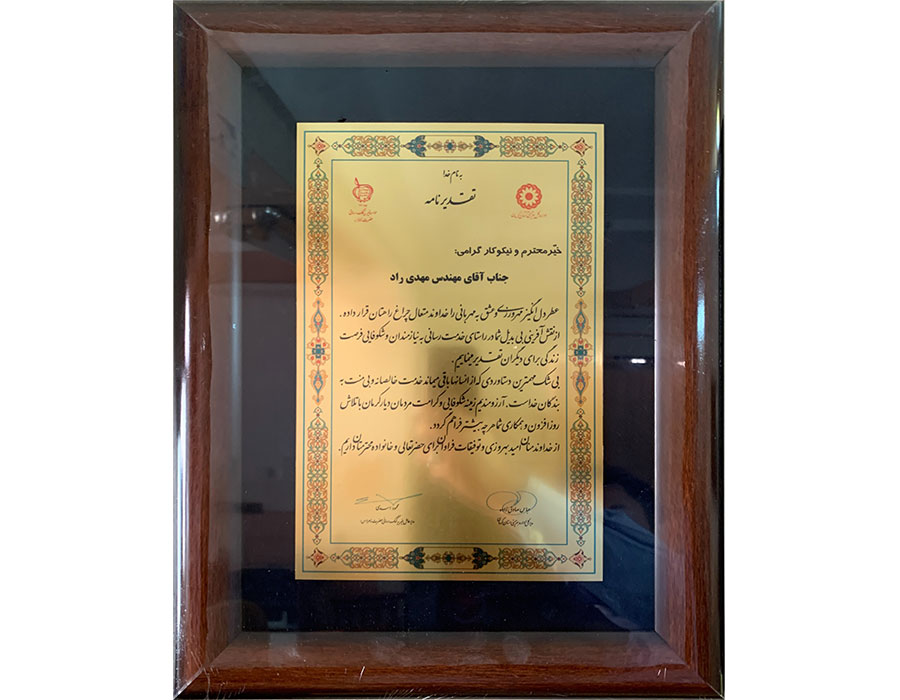 به نام خدا
تقدیرنامه
خیّر محترم و نیکوکار گرامی:
جناب آقای مهندس مهدی راد
عطر دل انگیز مهرورزی و عشق به مهربانی را خداوند متعال چراغ راهتان قرار داده .
از نقش آفرینی بی بدیل شما در راستای خدمت رسانی به نیازمندان و شکوفایی فرصت
زندگی برای دیگران تقدیر مینماییم .
بی شک مهمترین دستاوردی که از انسانها باقی میماند خدمت خالصانه و بی منت به
بندگان خداست . آرزومندیم زمینه شکوفایی و کرامت مردمان دیار کرمان با تلاش
روز افزون و همکاری شما هر چه بیشتر فراهم گردد .
از خداوند منان امید بهروزی و توفیقات فراوان برای حضرتعالی و خانواده محترمتان داریم .
عباس صادق زاده